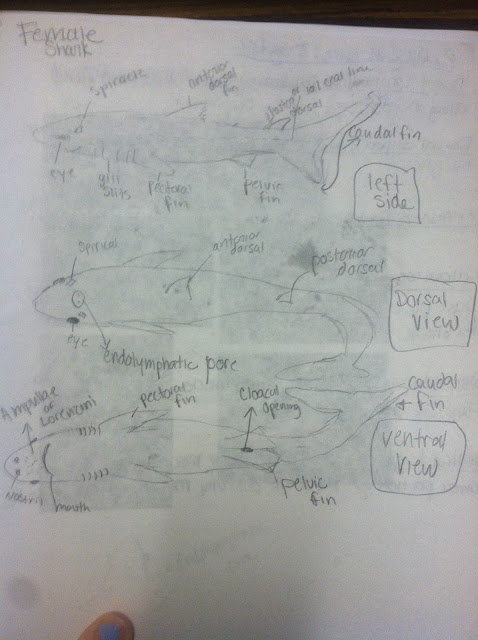 Female
Shark
spiracle
anterior
dorsal
fin
lateral line
dorsal
caudal fin
eye
gill
slits
pectoral
fin
pelvic
fin
left
side
spiracl
anterior
dorsal
posterior
dorsal
Dorsal
view
eye
endolymphatic pore
Ampullae
of
Lorenzini
pectoral
fin
Cloacal
opening
caudal
fin
ventral
view
Nostril
mouth
pelvic
fin